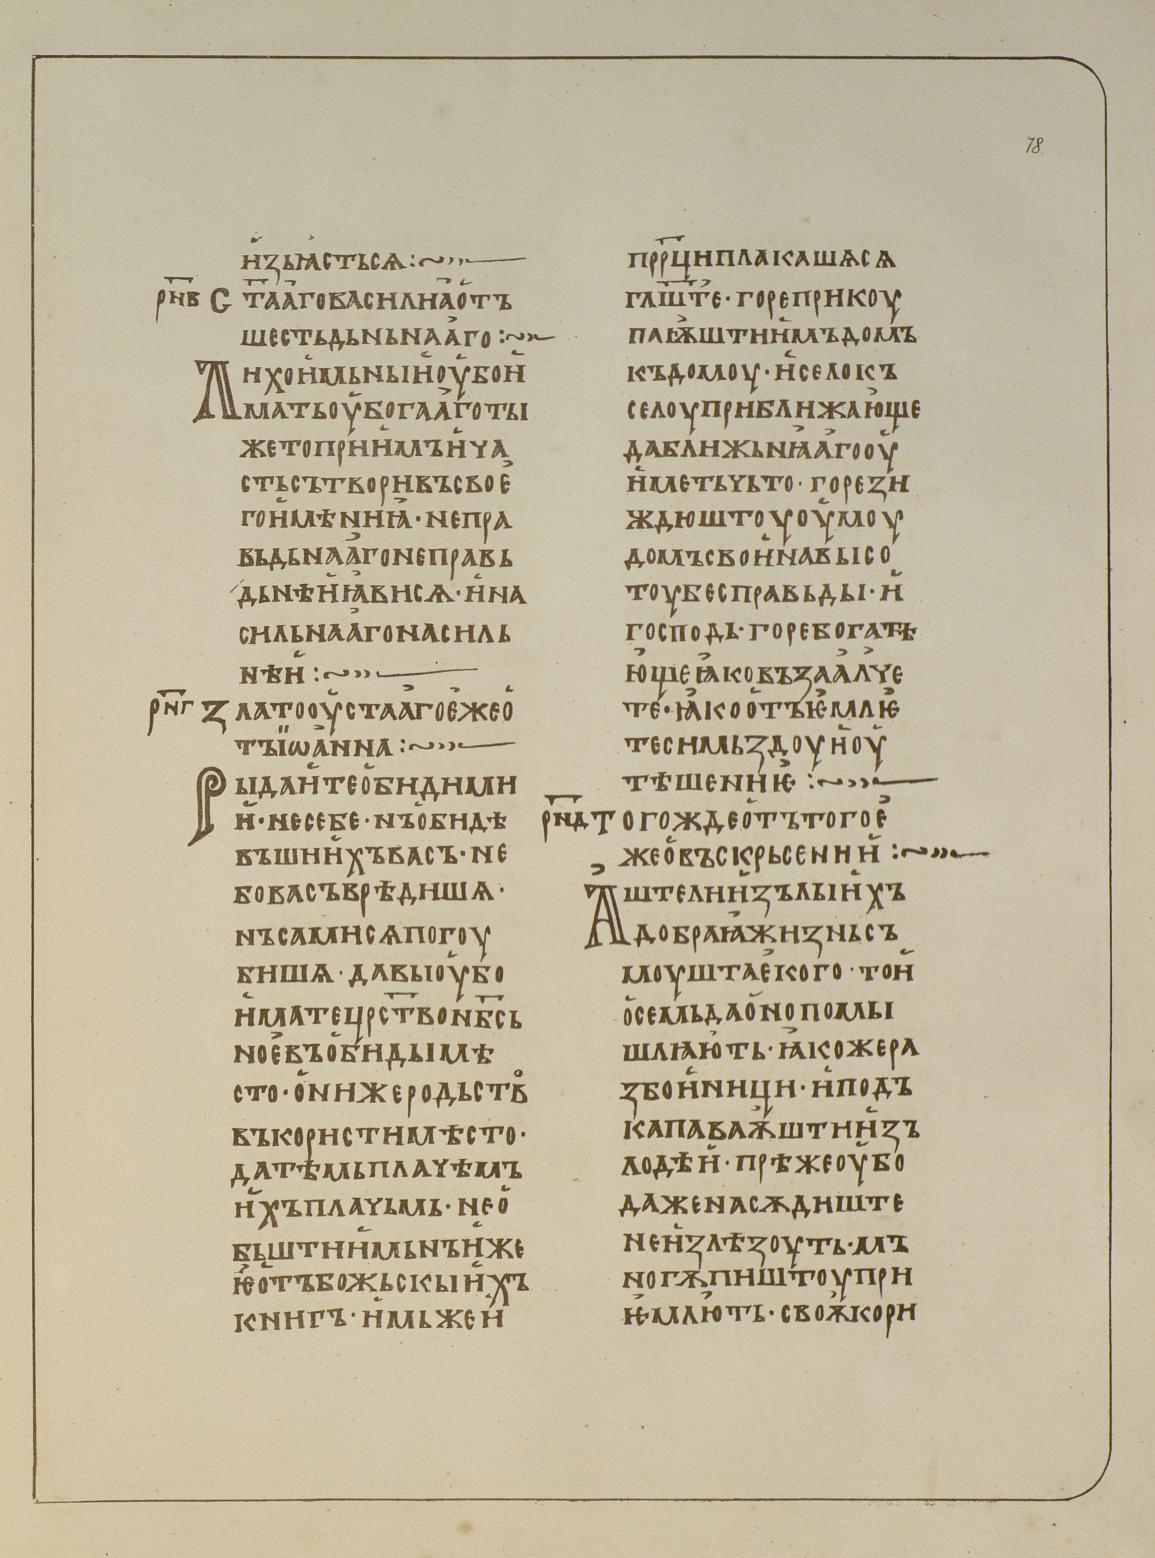 78
изъꙗстьсѧ :~»—
р҃нв С҃таагобасилиаотъ
шестьдьньнааго :~»—
Лихоимьныиоубои
матьоубогааготы
жетоприимъича
стьсътворивъсвое
гоимѣниꙗ · непра
вьдьнаагонеправь
дьнѣиꙗвисѧ · ина
сильнаагонасиль
нѣи :~»—
р҃нг Златооустаагоежео
тъіѡанна :~»—
Рыдаитеобидими
и · несебе · нъобидѣ
въшиихъвасъ · не
бовасъврѣдишѧ ·
нъсамисѧпогоу
бишѧ · давыоубо
иматецр҃ствонб҃сь
ноевъобидымѣ
сто · онижеродьств
въкористимѣсто ·
датѣмьплачѣмъ
ихъплачьмь · нео
бьштиимьнъиже
ѥотъбожьскыихъ
книгъ · имьжеи
прр҃циплакашѧсѧ
гл҃ште · гореприкоу
плѭштиимъдомъ
къдомоу · иселокъ
селоуприближающе
даближьнꙗагооу
иметьчьто · горези
ждюштоуоумоу
домъсвоинавысо
тоубесправьды · и
господь · горебогатѣ
ющеꙗковъзаалъче
те · ꙗкоотъѥмлѥ
тесимьздоуиоу
тѣшениѥ :~»—
р҃нд Тогождеотътогое
жеовъскрьсении :~»—
Аштелиизълыихъ
адобраꙗжизньсъ
моуштаекого · тои
оселмьдаонопомы
шлꙗють · ꙗкожера
збоиници · иподъ
капаваѭштиизъ
лодѣи · прѣжеоубо
даженасѫдиште
неизлѣзоуть · мъ
ногѫпиштоупри
ѥмлють · своѭкори